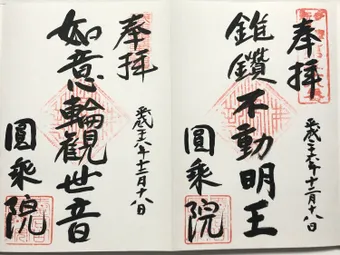 奉拝
十二月十八日
錐鑽不動明王
圓乗院
奉拝
十二月十八日
如意輪観世音
圓乗院